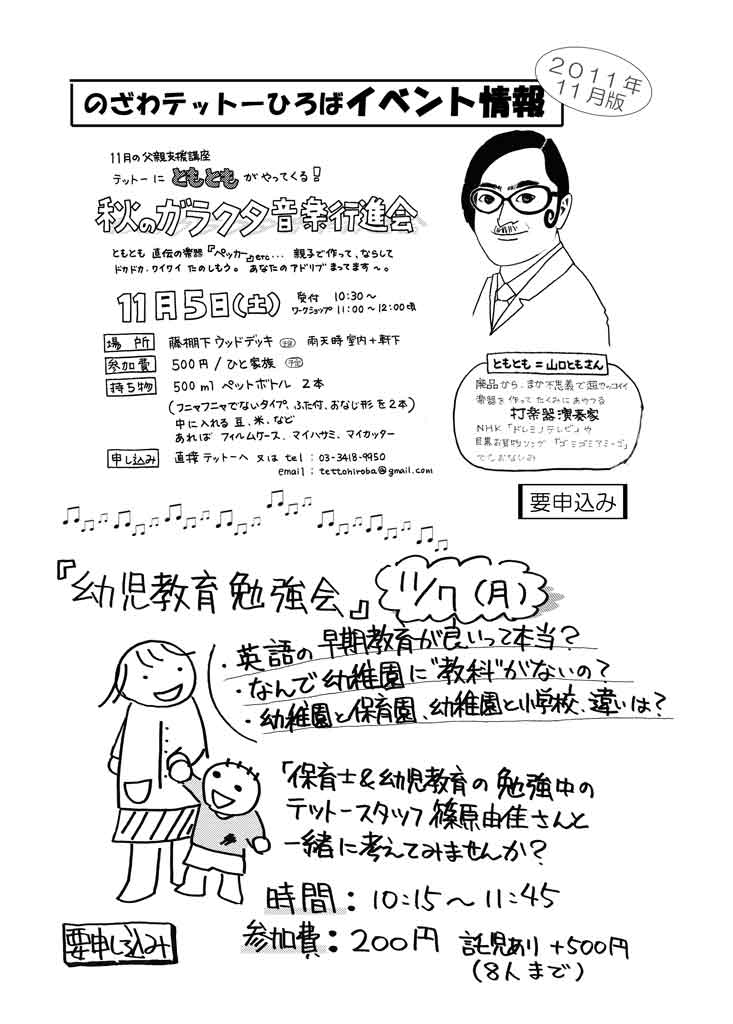 のざわテットーひろばイベント情報
2011年
11月版
11月の父親支援講座
テットーに ともとも がやってくる!
秋のガラクタ音楽行進会
ともとも 直伝の楽器『ペッカー』etc… 親子で作って、ならして
ドカドカ、ワイワイ たのしもう。 あなたのアドリブ まってます〜。
11月5日(土) 受付 10:30〜
ワークショップ 11:00〜12:00頃
場 所 藤棚下 ウッドデッキ 雨天時 室内+軒下
参加費 500円/ひと家族
持ち物 500ml ペットボトル 2本
(フニャフニャでないタイプ、ふた付、おなじ形を2本)
中に入れる 豆、米、など
あれば フィルムケース、マイハサミ、マイカッター
申し込み 直接テットーへ 又は tel:03-3418-9950
email:tettohiroba@gmail.com
ともとも=山口ともさん
廃品から、まか不思議で超カッコイイ
楽器を作ってたくみにあやつる
打楽器演奏家
NHK「ドレミノテレビ」や
目黒お買物ソング「ゴミゴミアミーゴ」
でもおなじみ
要申込み
『幼児教育勉強会』 11/7(月)
・英語の早期教育が良いって本当?
・なんで幼稚園に"教科"がないの?
・幼稚園と保育園、幼稚園と小学校、違いは?
「保育士&幼児教育の勉強中の
テットースタッフ 篠原由佳さんと
一緒に考えてみませんか?
時間:10:15〜11:45
参加費:200円 託児あり +500円
(8人まで)
要申し込み